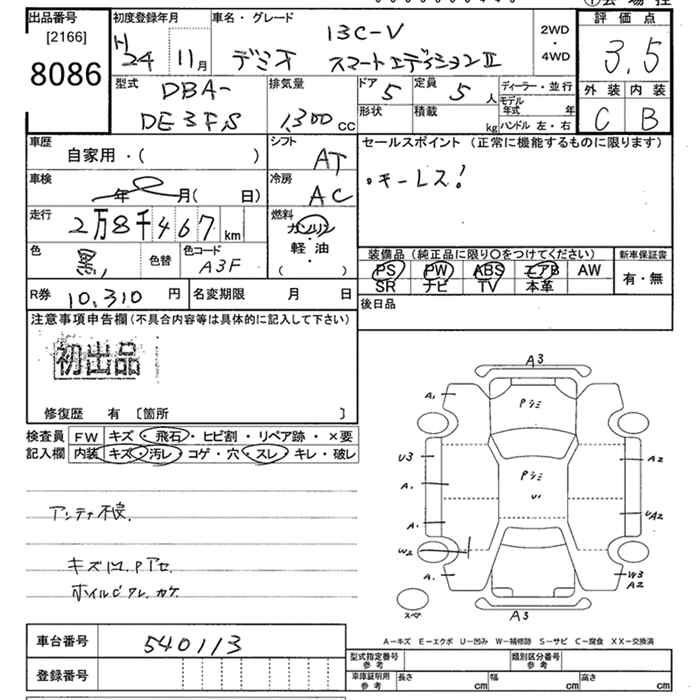 出品番号
[2166]
8086
初度登録年月
H 24 11月
車名・グレード
13C-V
デミオ スマートエディションⅡ
2WD
・
4WD
評価点
3.5
外装 内装
C B
型式
DBA-
DE3FS
排気量
1,300 CC
ドア 5
定員 5 人
ディーラー・並行
モデル年式 年
形状
積載 kg
ハンドル 左・右
車歴
自家用・( )
シフト
AT
セールスポイント (正常に機能するものに限ります)
・キーレス!
車検
年 月( 日)
冷房
AC
走行
2万8千467km
燃料
ガソリン
軽油
・
( )
色
黒
色替
色コード
A3F
装備品 (純正品に限り○をつけてください)
新車保証書
PS PW ABS エアB AW
SR ナビ TV 本革
有・無
R券 10,310 円
名変期限 月 日
後日品
注意事項申告欄(不具合内容等は具体的に記入して下さい)
初出品
修復歴 有 〔箇所 〕
検査員
記入欄
FW キズ・飛石・ヒビ割・リペア跡・×要
内装 キズ・汚レ・コゲ・穴・スレ・キレ・破レ
アンテナ不良.
ホイルC
A3
A1
Pシミ
U3
A2
A1
Pシミ
U1
A1
UA2
W2
A1
W3
A2
スペア
A3
A-キズ E-エクボ U-凹み W-補修跡 S-サビ C-腐食 XX-交換済
車台番号 540113
登録番号
型式指定番号
参考
類別区分番号
参考
車庫証明用
参考
長さ cm
幅 cm
高さ cm